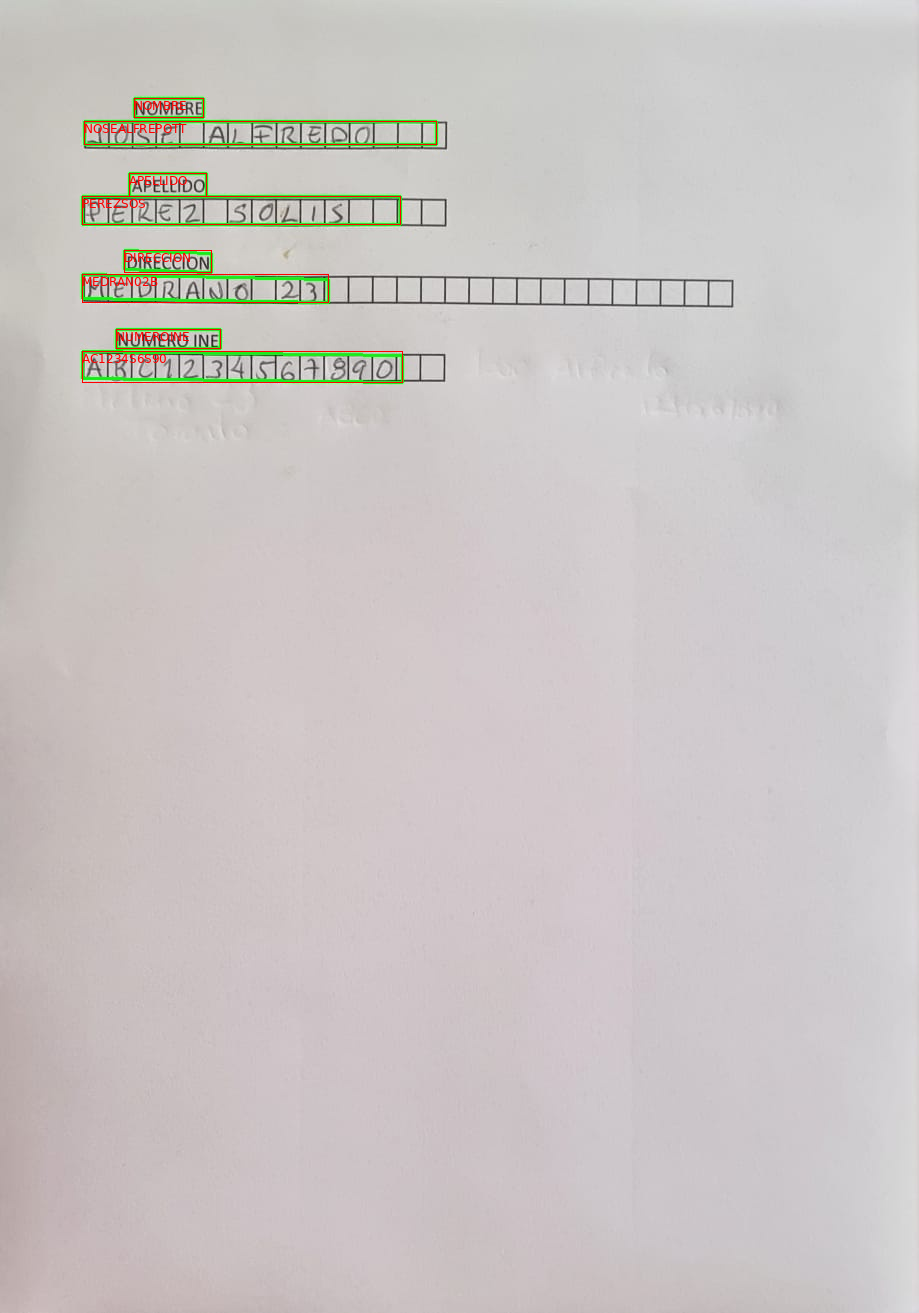 NOMBRE
NOMBRE
NOSEALFREPOTT
JOSE ALFREDO
APELLIDO
APELLIDO
PEREZSOS
PEREZ SOLIS
DIRECCION
DIRECCION
MEDRAN02B
MEDRANO 23
NUMEROINE
NUMERO INE
AC123456S90
ABC1234567890